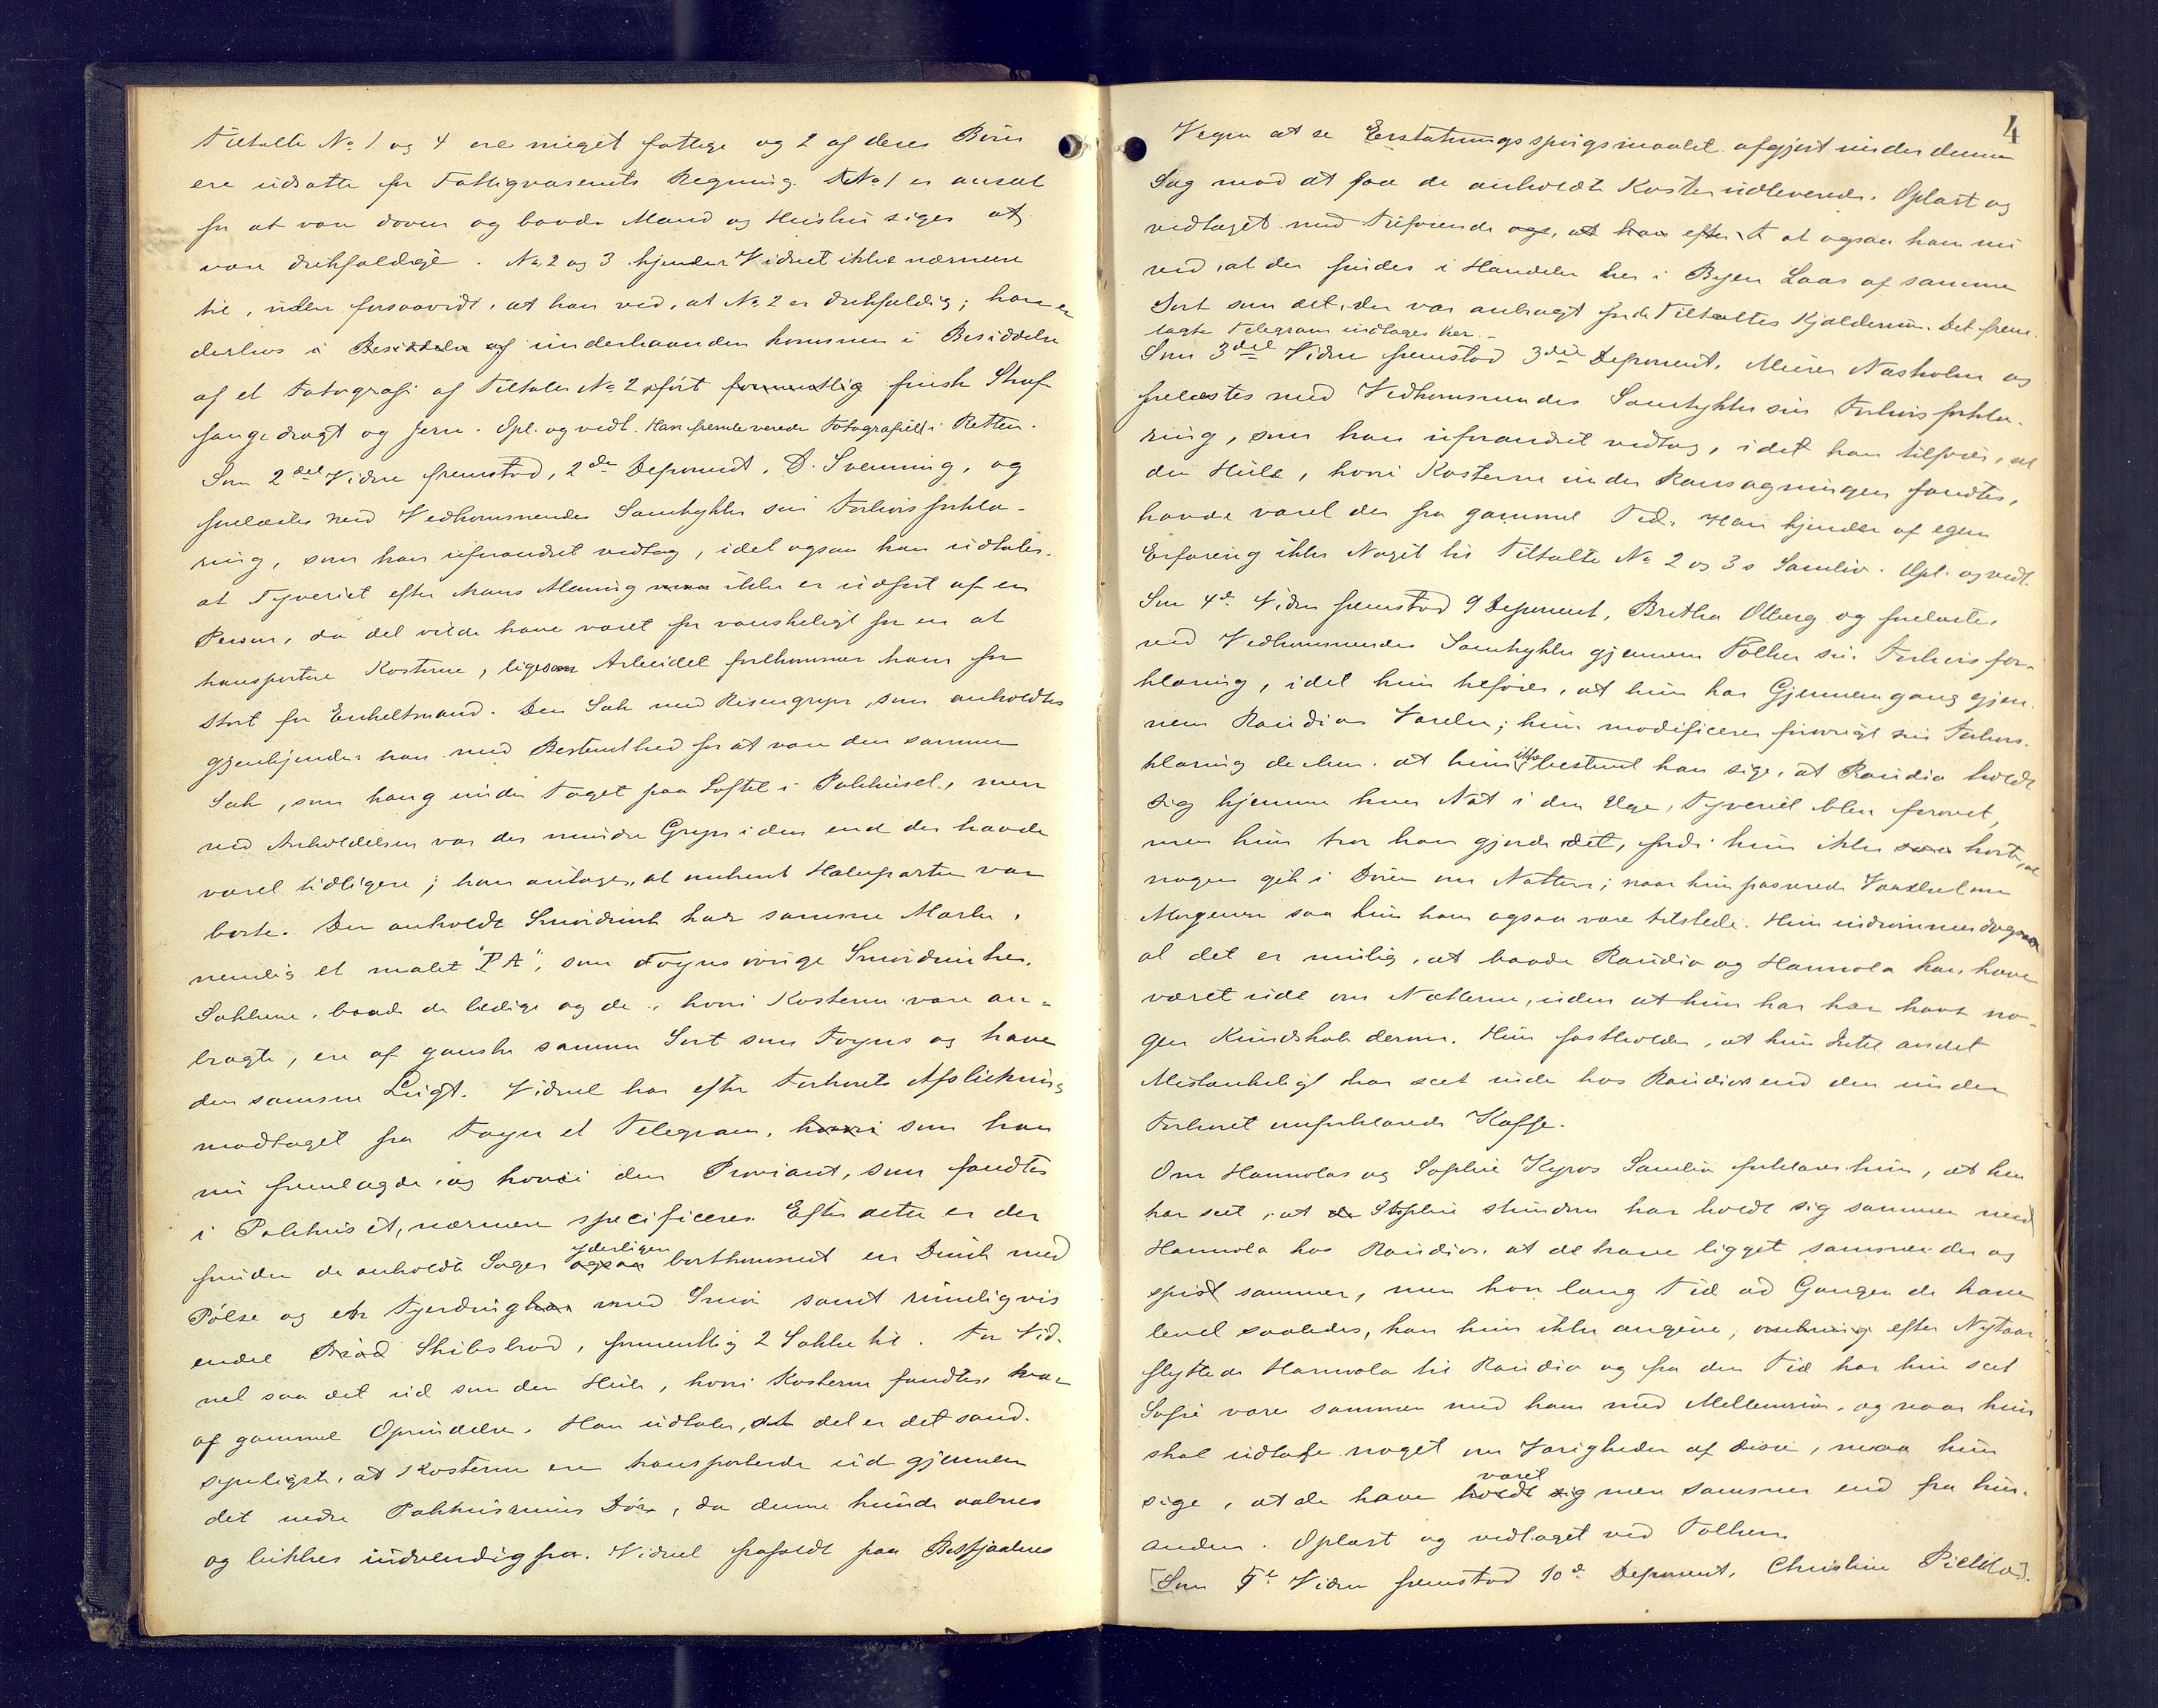 Tiltalte No 1 og 4 ere meget fattige og 2 af deres Børn
ere udsatte for Fattigvæsenets Regning. No 1 er anseet
for at være doven og baade Mand og Hustru siges at
være drikfældige. No 2 og 3 kjender Vidnet ikke nærmere
til, uden forsaavidt, at han ved, at No 2 er drikfældig; han er
derhos i Besiddelse af underhaanden kommen i Besiddelse
af et Fotografi af Tiltalte No 2 iført formentlig finsk Straf
fangedragt og Jern. Opl. og vedt. Han fremleverede Fotografiet i Retten.
Som 2det Vidne fremstod, 2de Deponent, D. Svenning, og
forelæstes med Vedkommendes Samtykke sin Forhørsforkla-
ring, som han uforandret vedtog, idet ogsaa han udtaler,
at Tyveriet efter hans Mening maa ikke er udført af en
Person, da det vilde have været for vanskeligt for en at
transportere Kosterne, ligesom Arbeidet forekommer ham for
stort for Enkeltmand. Den Sæk med Risengryn, som anholdtes
gjenkjender han med Bestemthed for at være den samme
Sæk, som hang under Taget paa Loftet i Pakhuset, men
ved Anholdelsen var der mindre Gryn i den end der havde
været tidligere; han antager, at omtrent Halvparten var
borte. Den anholdte Smørdunk har samme Mærke,
nemlig et malet "P A", som Foyns øvrige Smørdunker.
Sækkene, baade de ledige og de, hvori Kosterne vare an-
bragte, ere af ganske samme Sort som Foyns og have
den samme Lugt. Vidnet har efter Forhørets Afslutning
modtaget fra Foyn et Telegram, hvori som han
nu fremlagde, og hvori den Proviant, som fandtes
i Pakhuset, nærmere specificeres. Efter dette er der
foruden de anholdte Sager ogsaa yderligere bortkommet en Dunk med
Pølse og en Fjerding med Smør samt rimeligvis
endel Brød Skibsbrød, formentlig 2 Sække til. For Vid-
net saa det ud som den Hule, hvori Kosterne fandtes, var
af gammel Oprindelse. Han udtaler, at det er det sand-
synligste, at Kosterne ere transporterede ud gjennem
det nedre Pakhusrums Dør, da denne kunde aabnes
og lukkes indvendig fra. Vidnet frafaldt paa Bestfaders
4
Vegne at se Erstatningsspørgsmaalet afgjort under denne
Sag mod at faa de anholdte Koster udleverede. Oplæst og
vedtaget med Tilføiende ogs, at han efter at ogsaa han nu
ved, at der findes i Handelen her i Byen Laas af samme
Sort som det, der var anbragt for de Tiltaltes Kjælderrum. Det frem-
lagte Telegram indtages her.
Som 3die Vidne fremstod 3die Deponent, Murer Næsholm og
forelæstes med Vedkommendes Samtykke sin Forhørsforkla-
ring, som han uforandret vedtog, idet han tilføier, at
den Hule, hvori Kosterne under Ransagningen fandtes,
havde været der fra gammel Tid. Han kjender af egen
Erfaring ikke Noget til Tiltalte No 2 og 3s Samliv. Opl. og vedt.
Som 4de Vidne fremstod 9 Deponent, Bretha Olberg og forelæstes
med Vedkommendes Samtykke gjennem Tolken sin Forhørsfor-
klaring, idet hun tilføier, at hun har Gjennemgang gjen-
nem Raudios Værelse; hun modificerer forøvrigt sin Forhørs-
klaring derhen, at hun ikke bestemt kan sige, at Raudio holdt
sig hjemme hver Nat i den Uge, Tyveriet blev forøvet,
men hun tror han gjorde det, fordi hun ikke saa hørte, at
nogen gik i Døren om Natten; naar hun passerede Værelset om
Morgenen saa hun ham ogsaa være tilstede. Hun indrømmer dog
at det er mulig, at baade Raudio og Hannola kan have
været ude om Nætterne, uden at hun har har havt no-
gen Kundskab derom. Hun fastholder, at hun Intet andet
Mistænkeligt har seet inde hos Raudios end den under
Forhøret omforklarede Kaffe.
Om Hannolas og Sophie Kyrøs Samliv forklarer hun, at hun
har seet, at Sophie stundom har holdt sig sammen med
Hannola hos Raudios, at de have ligget sammen der og
spist sammen, men hvor lang Tid ad Gangen de have
levet saaledes, kan hun ikke angive; omkring efter Nytaar
flyttede Hannola til Raudio og fra den Tid har hun seet
Sofie være sammen med ham med Mellemrum, og naar hun
skal udtale noget om Varigheden af disse, maa hun
sige, at de have holdt sig været mer sammen end fra hin-
anden. Oplæst og vedtaget ved Tolken.
Som 5te Vidne fremstod 10de Deponent, Christine Pietilæ.